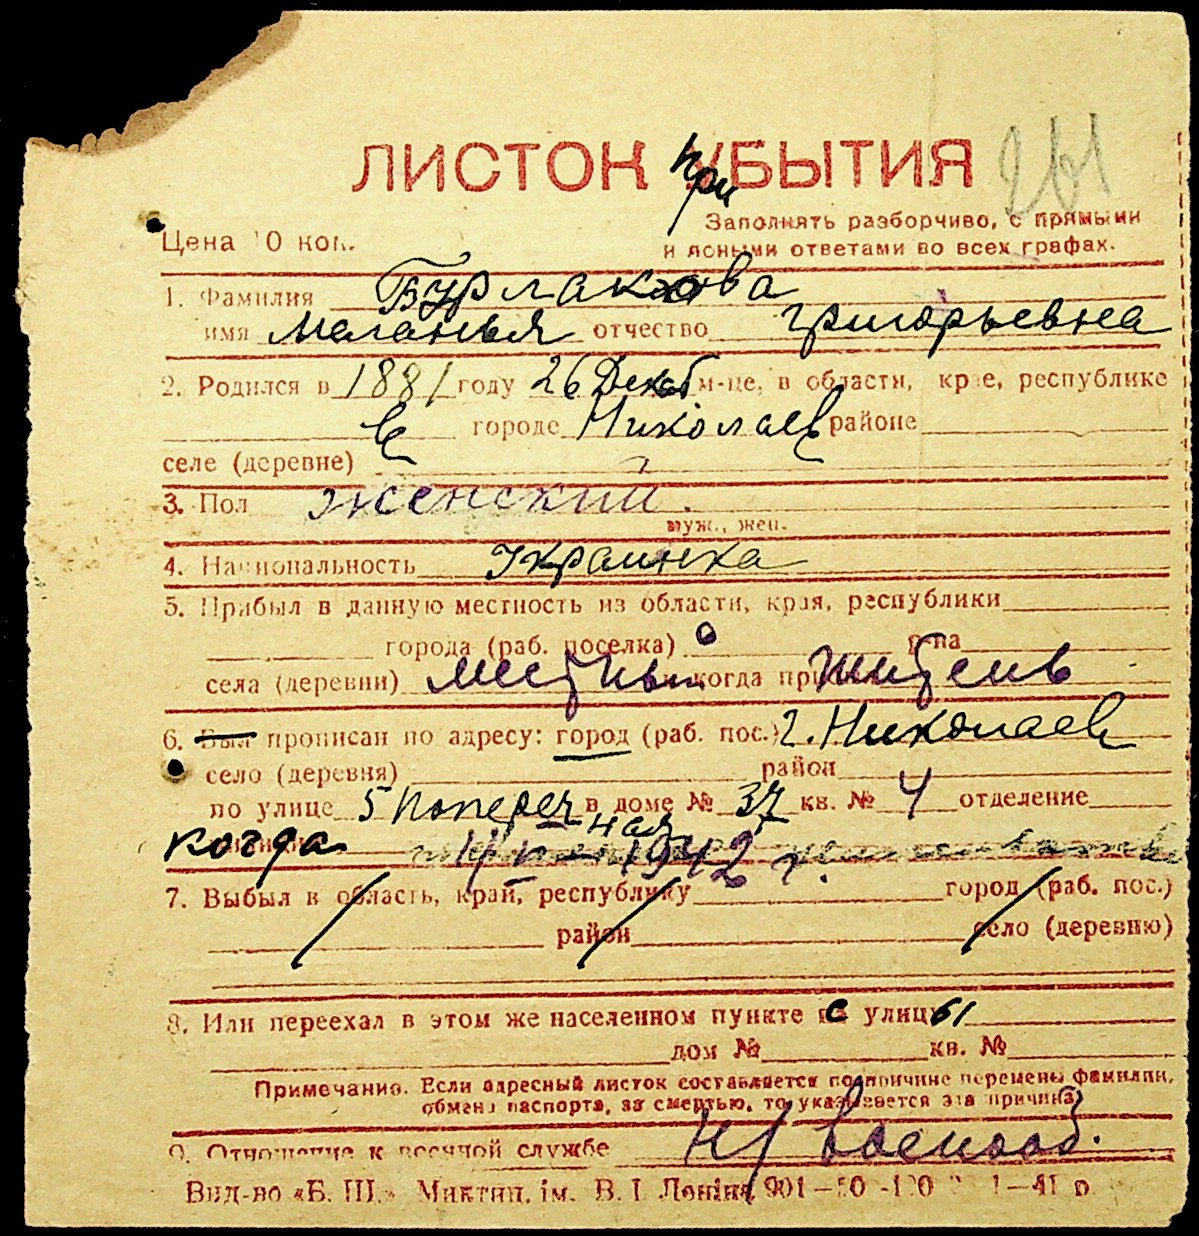 261
ЛИСТОК УБЫТИЯ
при
Заполнять разборчиво, с прямыми
Цена 10 коп.
и ясными ответами во всех графах.
1. Фамилия Бурлакова
имя Меланья отчество Григорьевна
2. Родился в 1881 году 26 Декаб м-це, в области, крае, республике
в городе Николаев районе
селе (деревне)
3. Пол женский.
муж., жен.
4. Национальность Украинка
5. Прибыл в данную местность из области, края, республики
города (раб. поселка) р-на
села (деревни) местный когда при житель
6. Был прописан по адресу: город (раб. пос.) г. Николаев
село (деревня) район
по улице 5 Попереч ная в доме № 37 кв. № 4 отделение
когда 1942 г.
7. Выбыл в область, край, республику город (раб. пос.)
район село (деревню)
8. Или переехал в этом же населенном пункте с улицы
дом № кв. №
Примечание. Если адресный листок составляется по причине перемены фамилии,
обмена паспорта, за смертью, то указывается эта причина)
9. Отношение к военной службе н/военооб.
Вид-во «Б. Ш.» Миктип. ім. В. І. Леніна 901—50